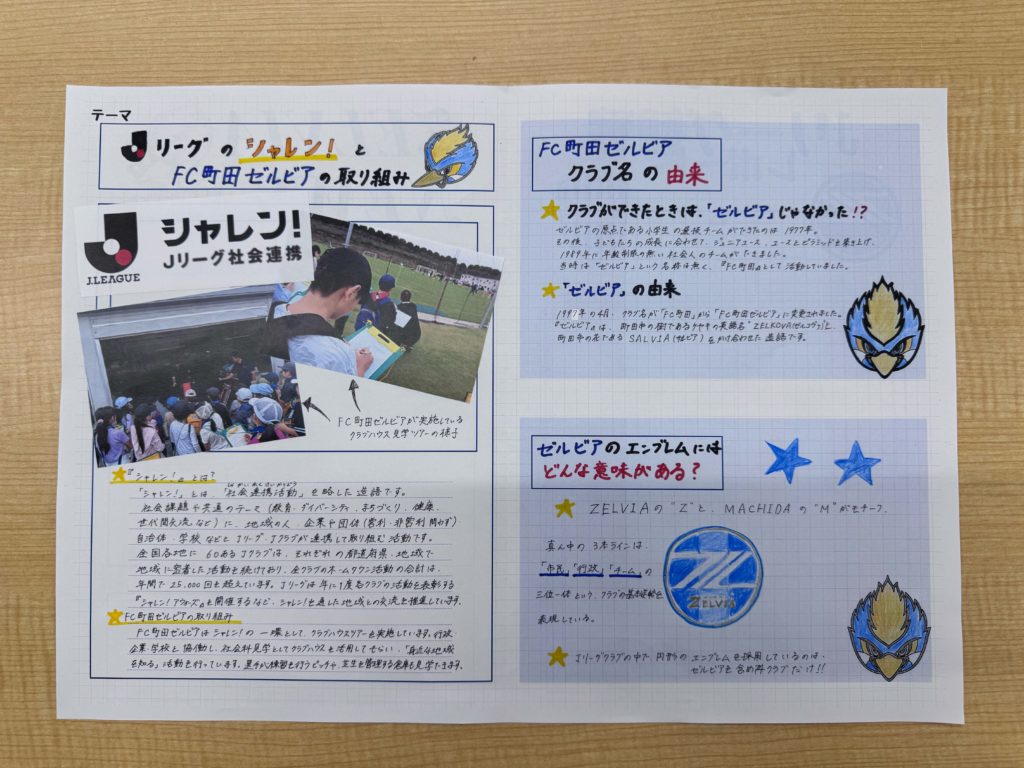 テーマ
Jリーグの シャレン! と
FC町田ゼルビアの取り組み
シャレン!
Jリーグ社会連携
J.LEAGUE
FC町田ゼルビアが実施している
クラブハウス見学ツアーの様子
『シャレン!』とは?
しゃかいれんけいかつどう
「シャレン!」とは、「社会連携活動」を略した造語です。
社会課題や共通のテーマ(教育、ダイバーシティ、まちづくり、健康、
世代間交流など)に、地域の人、企業や団体(営利・非営利問わず)
自治体、学校などとJリーグ・Jクラブが連携して取り組む活動です。
全国各地に60あるJクラブは、それぞれの都道府県、地域で
地域に密着した活動を続けており、全クラブのホームタウン活動の合計は、
年間で25,000回を超えています。Jリーグは年に1度各クラブの活動を表彰する
『シャレン!アウォーズ』を開催するなど、シャレン!を通した地域との交流を推進しています。
FC町田ゼルビアの取り組み
FC町田ゼルビアはシャレン!の一環として、クラブハウスツアーを実施しています。行政、
企業、学校と協働し、社会科見学としてクラブハウスを活用してもらい、「身近な地域
を知る」活動を行っています。選手が練習を行うピッチや、芝生を管理する倉庫も見学できます。
FC町田ゼルビア
クラブ名の由来
クラブができたときは、「ゼルビア」じゃなかった!?
ゼルビアの原点である小学生の選抜チームができたのは1977年。
その後、子どもたちの成長に合わせて、ジュニアユース、ユースとピラミッドを築き上げ、
1989年に年齢制限の無い社会人のチームができました。
当時は「ゼルビア」という名称は無く、『FC町田』として活動していました。
「ゼルビア」の由来
1997年の4月、クラブ名が「FC町田」から「FC町田ゼルビア」に変更されました。
『ゼルビア』は、町田市の樹であるケヤキの英語名"ZELKOVA(ゼルコヴァ)"と、
町田市の花であるSALVIA(サルビア)をかけ合わせた造語です。
ゼルビアのエンブレムには
どんな意味がある?
ZELVIAの"Z"と、MACHIDAの"M"がモチーフ。
真ん中の3本ラインは、
「市民」「行政」「チーム」の
三位一体という、クラブの基本姿勢を
表現している。
ZELVIA
Jリーグクラブの中で、円形のエンブレムを採用しているのは、
ゼルビアを含め
クラブだけ!!